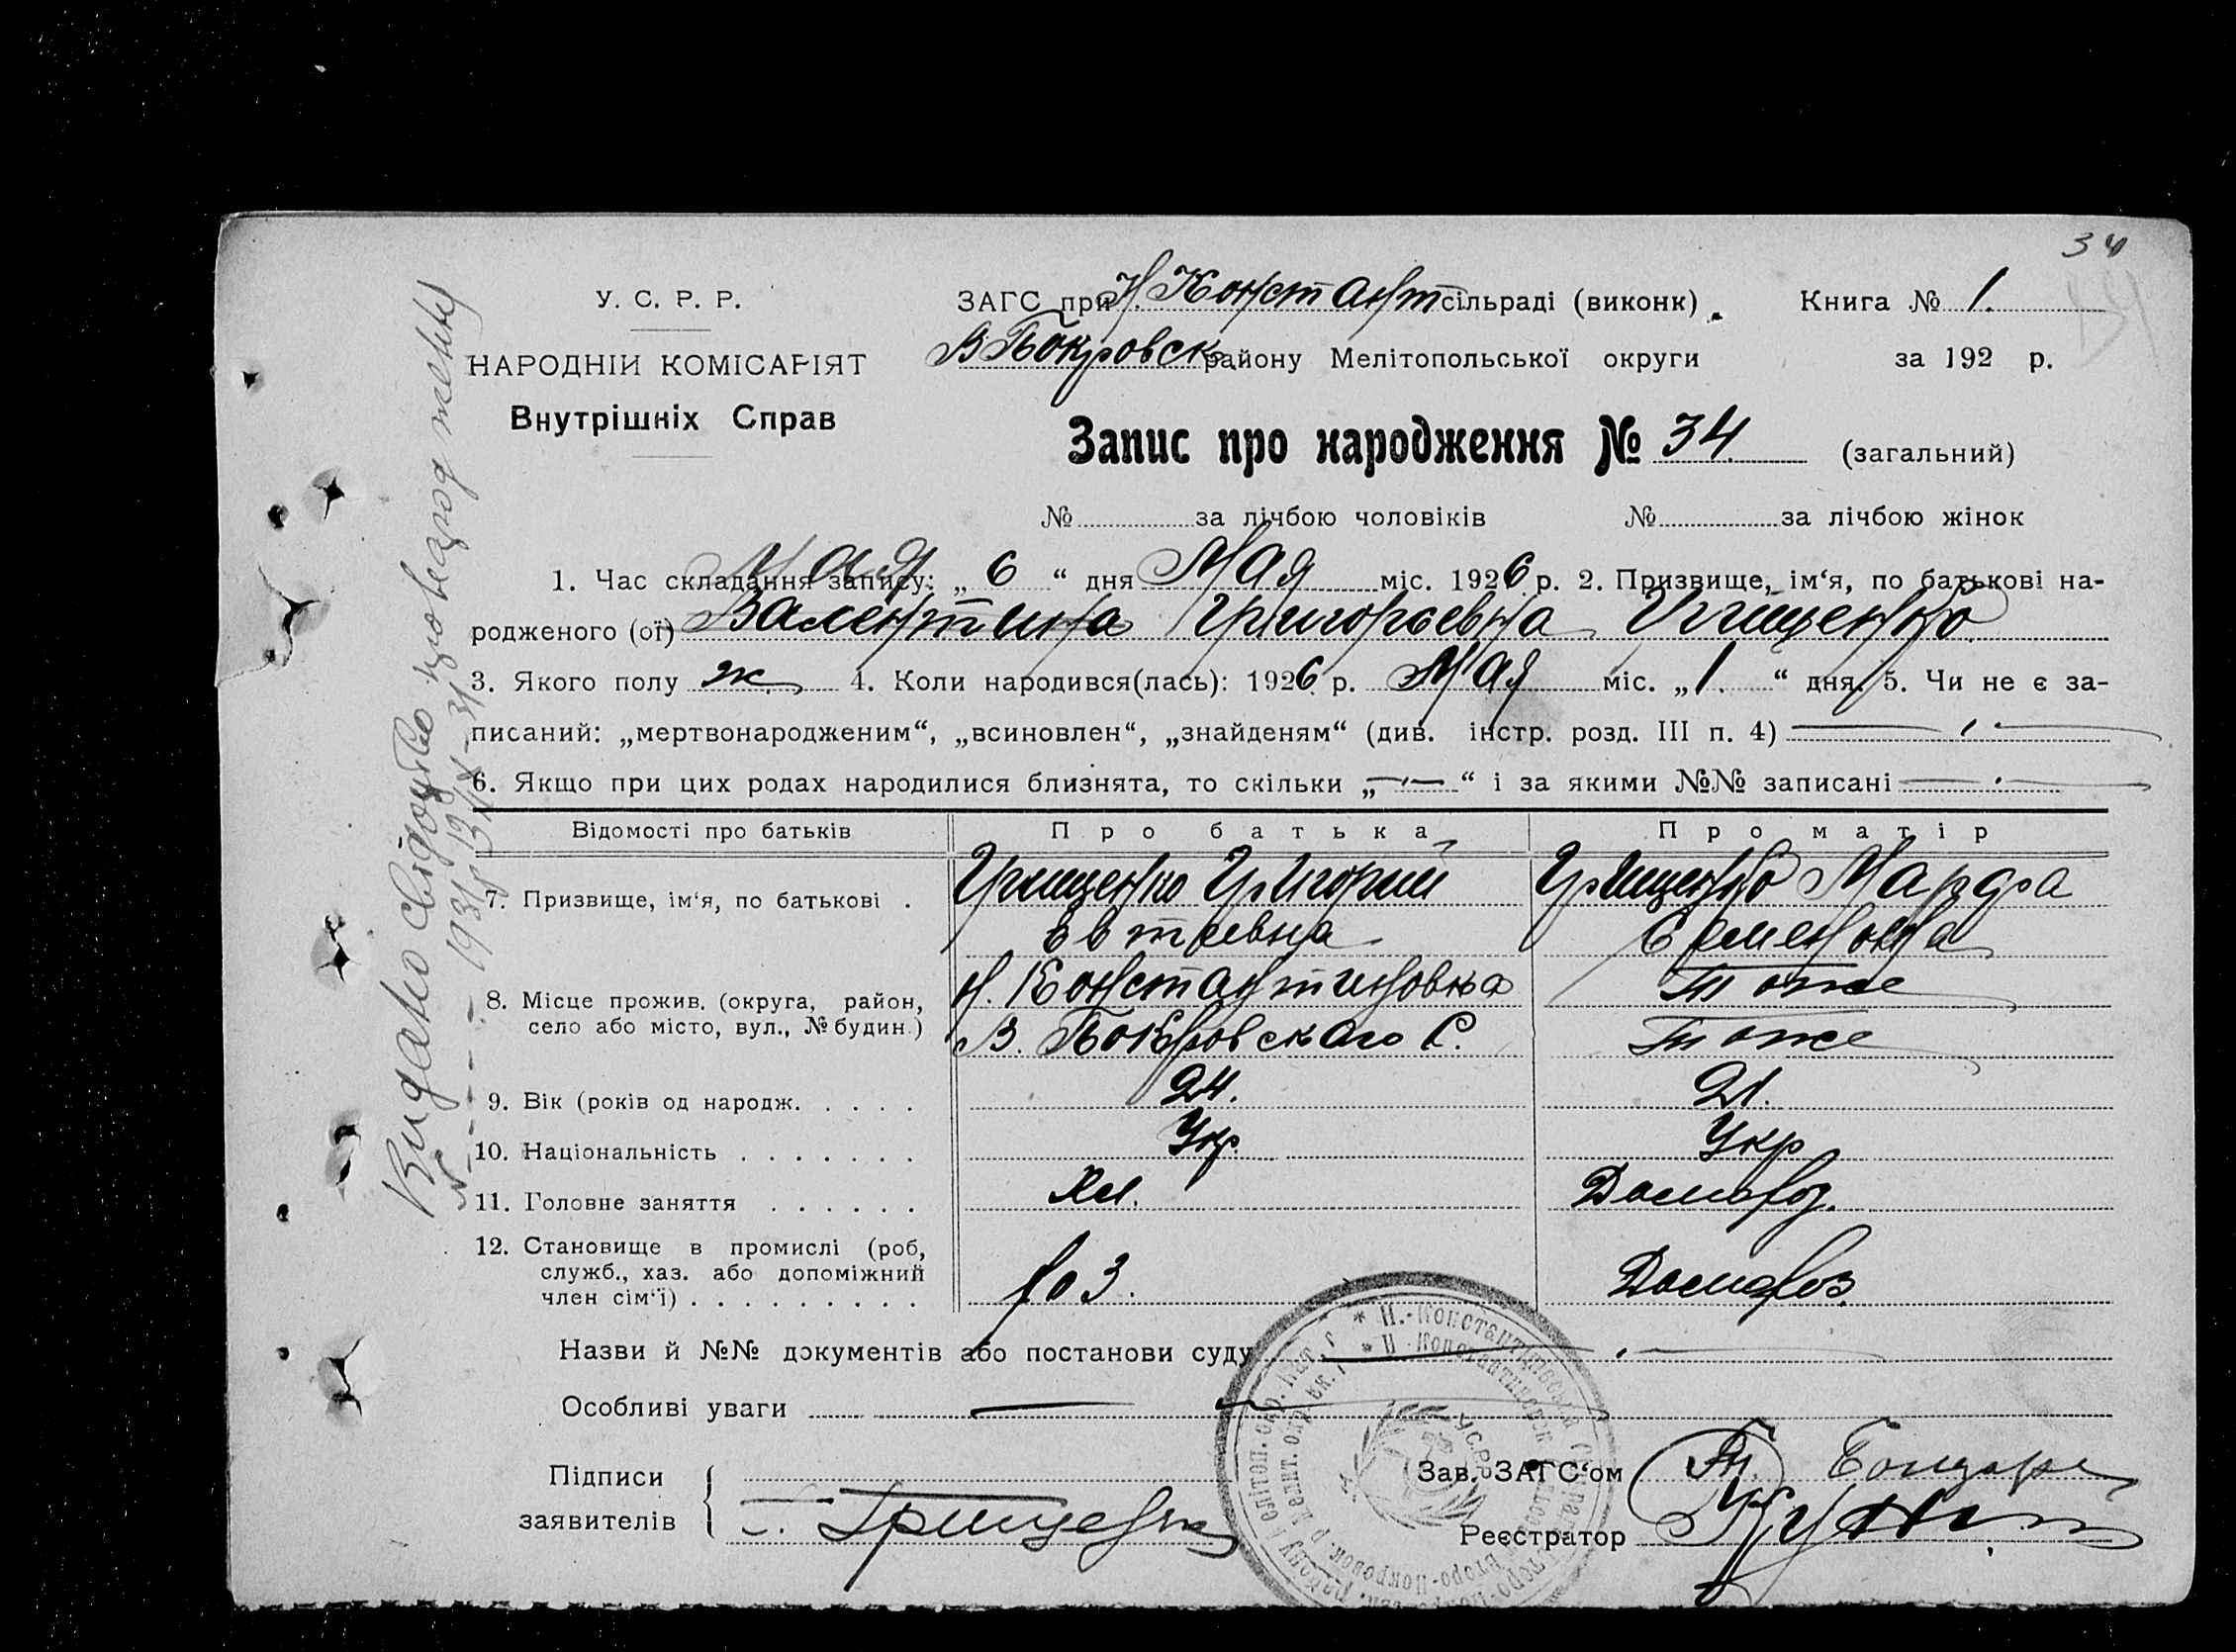 34
У. С. Р. Р.
ЗАГС при Н Константсільраді (виконк) Книга № 1.
НАРОДНІЙ КОМІСАРІЯТ
В Покровск району Мелітопольської округи за 192 р.
Внутрішніх Справ
Запис про народження № 34 (загальний)
№ за лічбою чоловіків № за лічбою жінок
Мая
1. Час складання запису: „ 6 “ дня Мая міс. 1926 р. 2. Призвище, ім‘я, по батькові на-
родженого (ої) Валентина Григорьевна Грищенко
3. Якого полу ж. 4. Коли народився(лась): 1926 р. Мая міс. „ 1. “ дня. 5. Чи не є за-
писаний: „мертвонародженим“, „всиновлен“, „знайденям“ (див. інстр. розд. III п. 4)
6. Якщо при цих родах народилися близнята, то скільки „ “ і за якими №№ записані
Відомості про батьків Про батька Про матір
7. Призвище, ім‘я, по батькові . Грищенко Григорий Грищенко Марфа
Семеновна
8. Місце прожив. (округа, район, Н. Константиновка Тоже
село або місто, вул., № будин.) В. Покровскаго С. Тоже
9. Вік (років од народж. . . . . 24. 21.
10. Національність . . . . . . . Укр. Укр
11. Головне заняття . . . . . . Хл. Домохоз.
12. Становище в промислі (роб,
служб., хаз. або допоміжний хоз. Домохоз.
член сім‘ї) . . . . . . . . .
Назви й №№ документів або постанови суду
Особливі уваги
Підписи
заявителів Грищенко
Зав. ЗАГС‘ом Бондарь
Реєстратор
Видано свідоцтво
1931
У.С.Р.Р.